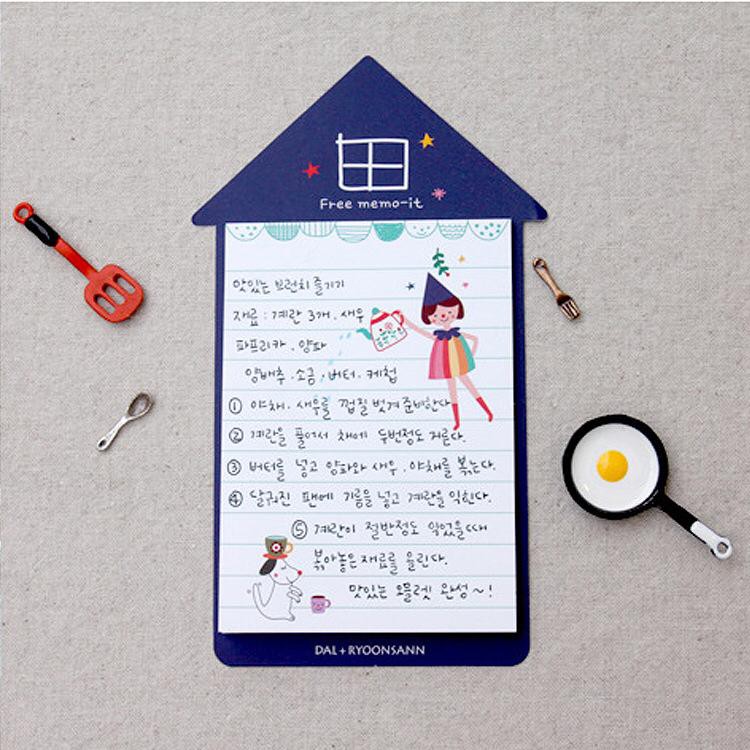 Free memo-it
맛있는 브런치 즐기기
재료 : 계란 3개 . 새우
파프리카 . 양파
양배추 . 소금 . 버터 . 케첩
① 야채 . 새우를 껍질 벗겨 준비한다
② 계란을 풀어서 채에 두번정도 거른다.
③ 버터를 넣고 양파와 새우 . 야채를 볶는다.
④ 달궈진 팬에 기름을 넣고 계란을 익힌다.
⑤ 계란이 절반정도 익었을때
볶아놓은 재료를 올린다.
맛있는 오믈렛 완성~!
DAL+RYOONSANN